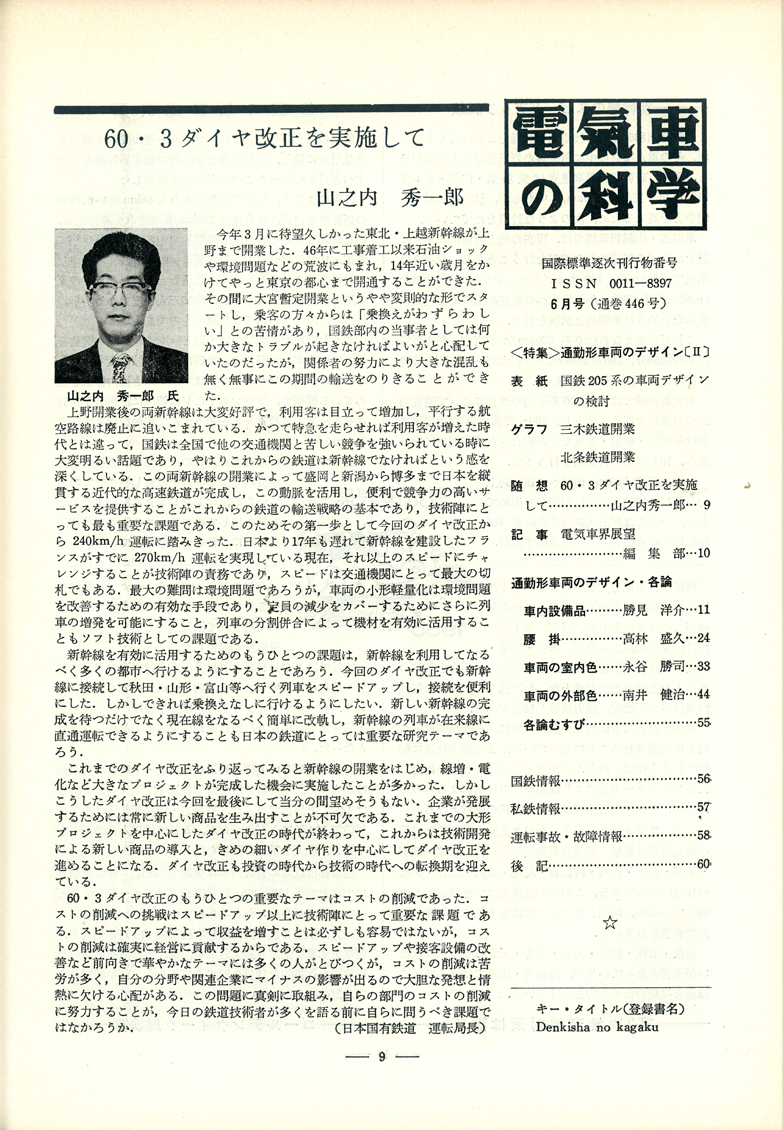 60・3ダイヤ改正を実施して
山之内　秀一郎
今年3月に待望久しかった東北・上越新幹線が上
野まで開業した．46年に工事着工以来石油ショック
や環境問題などの荒波にもまれ，14年近い歳月をか
けてやっと東京の都心まで開通することができた．
その間に大宮暫定開業というやや変則的な形でスタ
ートし，乗客の方々からは「乗換えがわずらわし
い」との苦情があり，国鉄部内の当事者としては何
か大きなトラブルが起きなければよいがと心配して
いたのだったが，関係者の努力により大きな混乱も
無く無事にこの期間の輸送をのりきることができ
た．
山之内　秀一郎　氏
上野開業後の両新幹線は大変好評で，利用客は目立って増加し，平行する航
空路線は廃止に追いこまれている．かつて特急を走らせれば利用客が増えた時
代とは違って，国鉄は全国で他の交通機関と苦しい競争を強いられている時に
大変明るい話題であり，やはりこれからの鉄道は新幹線でなければという感を
深くしている．この両新幹線の開業によって盛岡と新潟から博多まで日本を縦
貫する近代的な高速鉄道が完成し，この動脈を活用し，便利で競争力の高いサ
ービスを提供することがこれからの鉄道の輸送戦略の基本であり，技術陣にと
っても最も重要な課題である．このためその第一歩として今回のダイヤ改正か
ら 240km/h 運転に踏みきった．日本より17年も遅れて新幹線を建設したフラ
ンスがすでに 270km/h 運転を実現している現在，それ以上のスピードにチャ
レンジすることが技術陣の責務であり，スピードは交通機関にとって最大の切
札でもある．最大の難問は環境問題であろうが，車両の小形軽量化は環境問題
を改善するための有効な手段であり，定員の減少をカバーするためにさらに列
車の増発を可能にすること，列車の分割併合によって機材を有効に活用するこ
ともソフト技術としての課題である．
新幹線を有効に活用するためのもうひとつの課題は，新幹線を利用してなる
べく多くの都市へ行けるようにすることであろう．今回のダイヤ改正でも新幹
線に接続して秋田・山形・富山等へ行く列車をスピードアップし，接続を便利
にした．しかしできれば乗換えなしに行けるようにしたい．新しい新幹線の完
成を待つだけでなく現在線をなるべく簡単に改軌し，新幹線の列車が在来線に
直通運転できるようにすることも日本の鉄道にとっては重要な研究テーマであ
ろう．
これまでのダイヤ改正をふり返ってみると新幹線の開業をはじめ，線増・電
化など大きなプロジェクトが完成した機会に実施したことが多かった．しかし
こうしたダイヤ改正は今回を最後にして当分の間望めそうもない．企業が発展
するためには常に新しい商品を生み出すことが不可欠である．これまでの大形
プロジェクトを中心にしたダイヤ改正の時代が終わって，これからは技術開発
による新しい商品の導入と，きめの細いダイヤ作りを中心にしてダイヤ改正を
進めることになる．ダイヤ改正も投資の時代から技術の時代への転換期を迎え
ている．
60・3ダイヤ改正のもうひとつの重要なテーマはコストの削減であった．コ
ストの削減への挑戦はスピードアップ以上に技術陣にとって重要な課題であ
る．スピードアップによって収益を増すことは必ずしも容易ではないが，コス
トの削減は確実に経営に貢献するからである．スピードアップや接客設備の改
善など前向きで華やかなテーマには多くの人がとびつくが，コストの削減は苦
労が多く，自分の分野や関連企業にマイナスの影響が出るので大胆な発想と情
熱に欠ける心配がある．この問題に真剣に取組み，自らの部門のコストの削減
に努力することが，今日の鉄道技術者が多くを語る前に自らに問うべき課題で
はなかろうか．　（日本国有鉄道　運転局長）
電氣車
の科学
国際標準逐次刊行物番号
ISSN 0011—8397
6月号（通巻446号）
＜特集＞通勤形車両のデザイン〔Ⅱ〕
表　紙　国鉄205系の車両デザイン
の検討
グラフ　三木鉄道開業
北条鉄道開業
随　想　60・3ダイヤ改正を実施
して……………山之内秀一郎… 9
記　事　電気車界展望
………………………編　集　部…10
通勤形車両のデザイン・各論
車内設備品………勝見　洋介…11
腰　掛……………高林　盛久…24
車両の室内色……永谷　勝司…33
車両の外部色……南井　健治…44
各論むすび………………………55
国鉄情報……………………………56
私鉄情報……………………………57
運転事故・故障情報………………58
後　記………………………………60
☆
キー・タイトル（登録書名）
Denkisha no kagaku
— 9 —